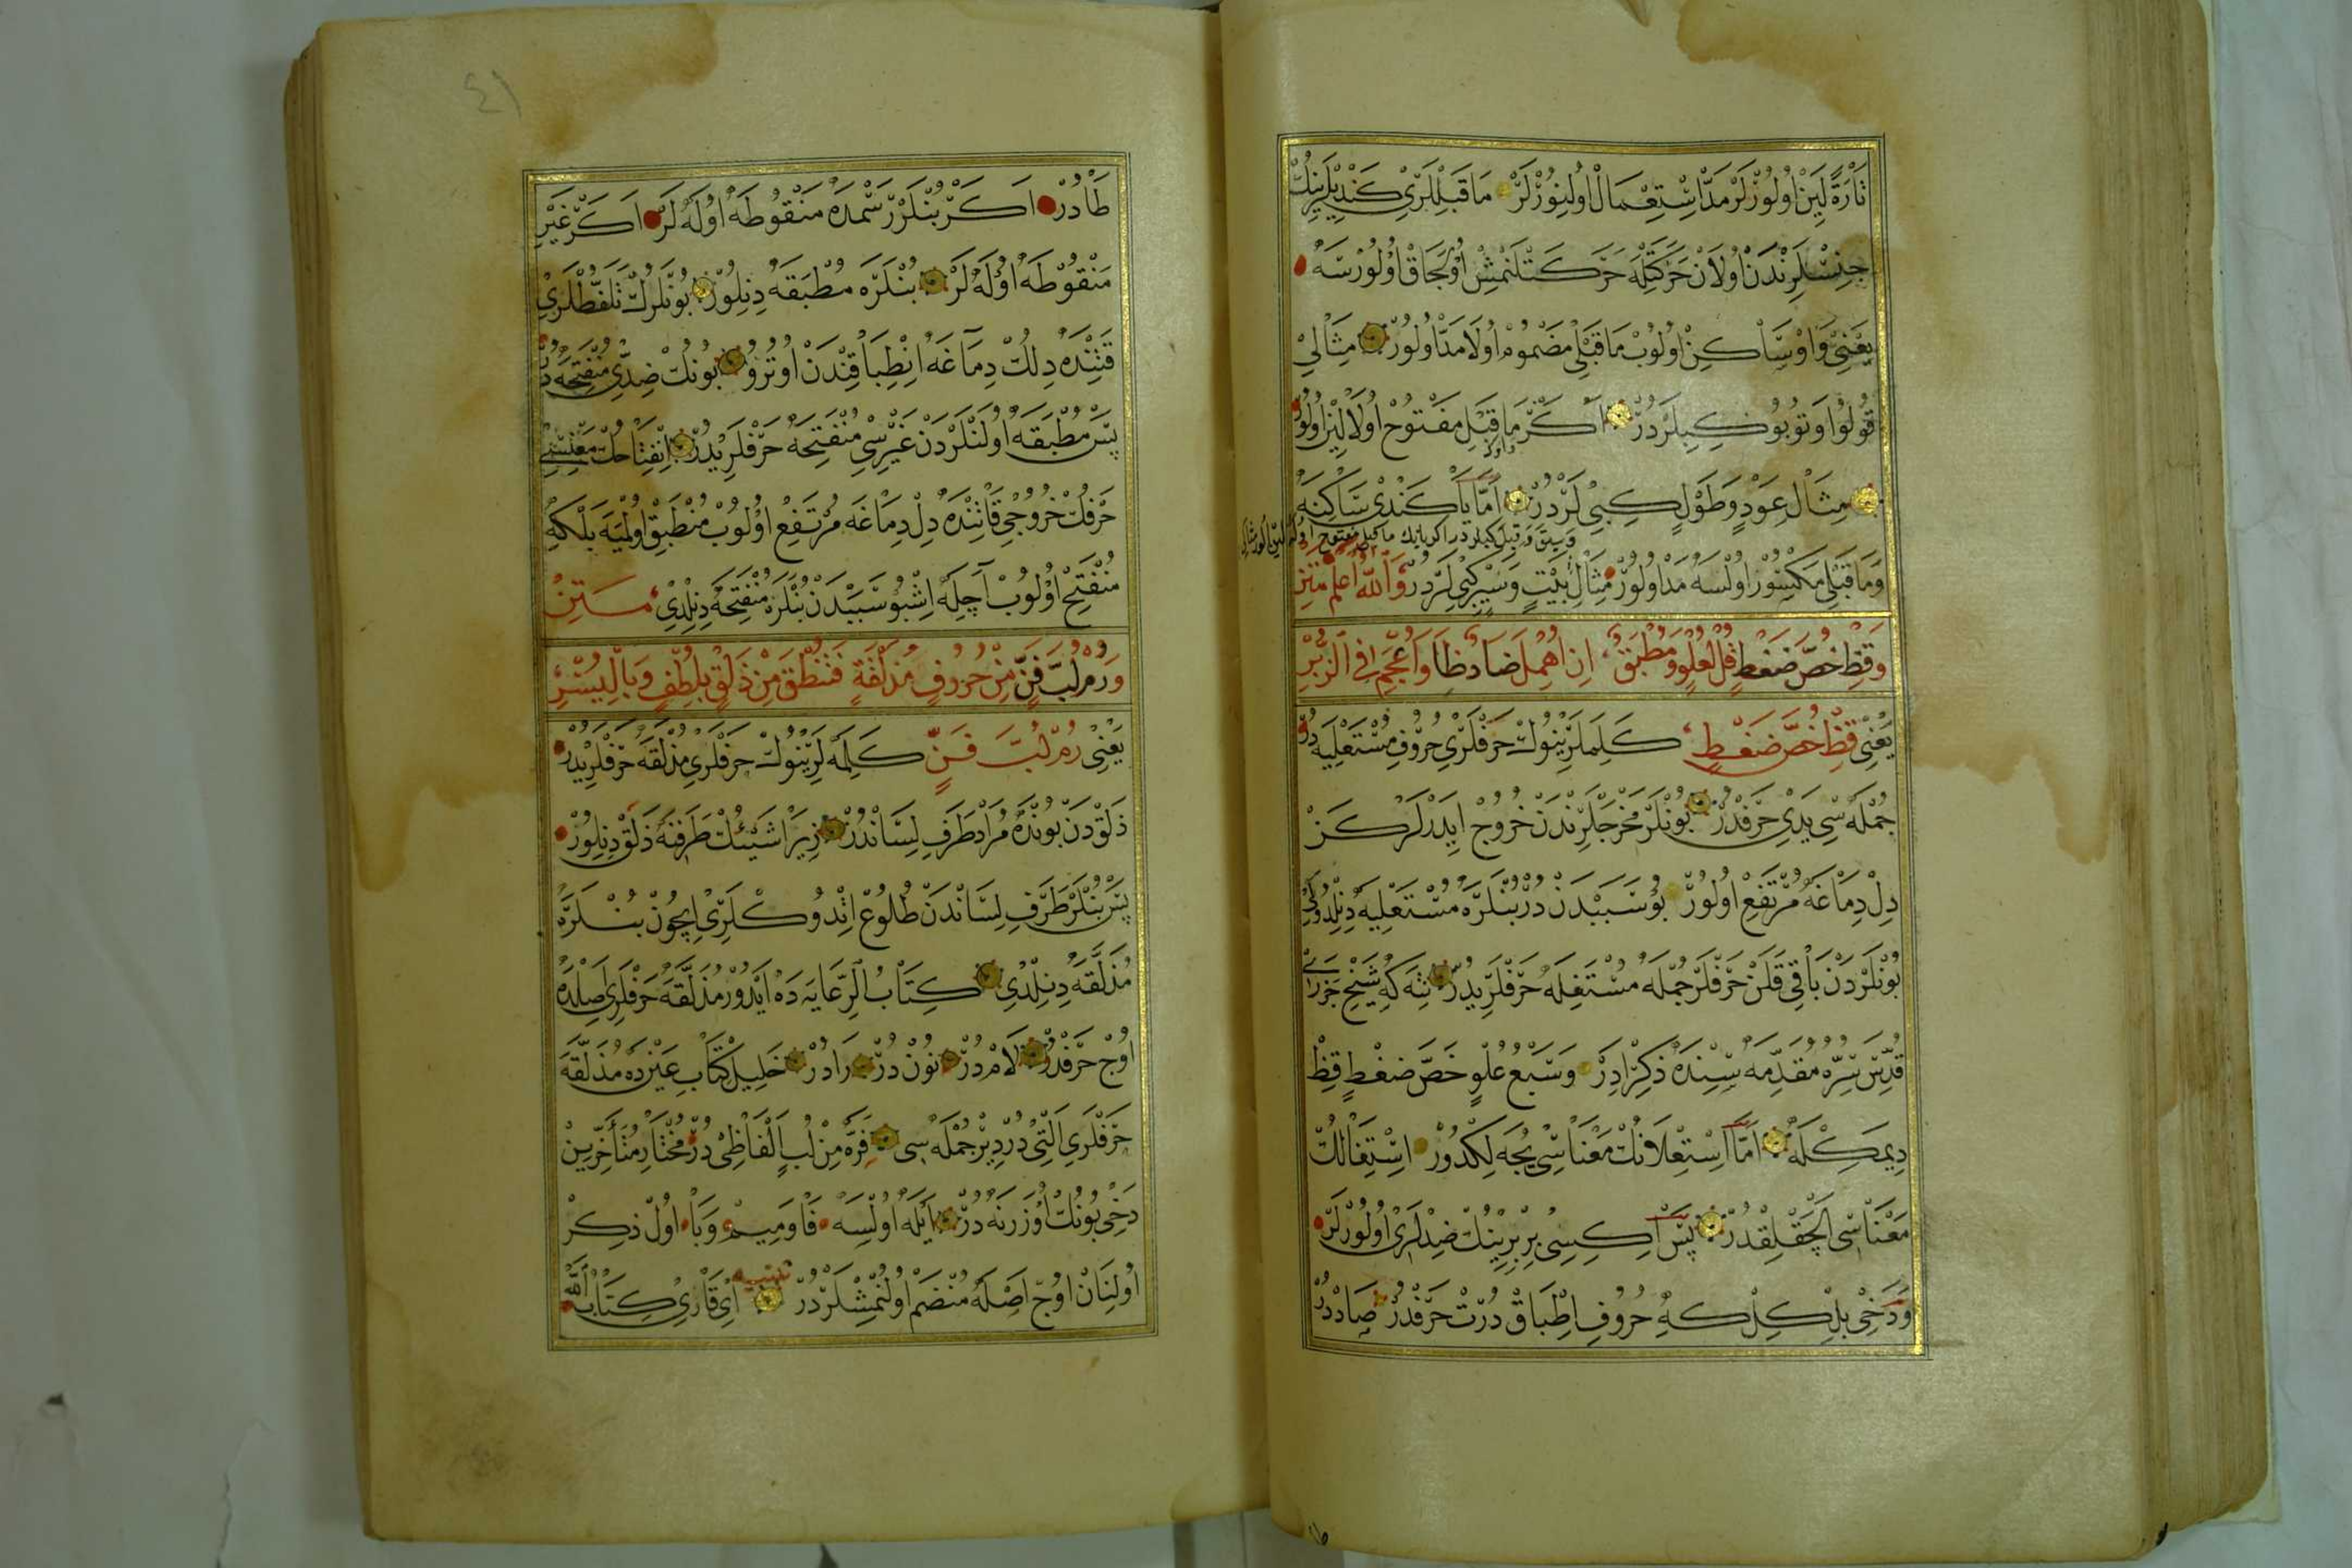 تَارَةً لَيِّنْ اُولُوزْلَرْ مَدَّ اِسْتِعْمَالْ اُولِنُوزْلَرْ مَاقَبْلْلَرِي كَنْدِيلَرِينُكْ
جِنْسْلَرِنْدَنْ اُولَانْ حَرَكَتِلَهْ حَرَكَتْلَنْمِشْ اُولَجَاقْ اُولُورْسَهْ
يَعْنِي وَاوْ سَاكِنْ اُولُوبْ مَاقَبْلِي مَضْمُومْ اُولَا مَدَّ اُولُورْ مِثَالِي
قُولُوا وَتُوبُوا كِبِيلَرْدُرْ اَكَرْ مَاقَبْلِ مَفْتُوحْ اُولَا لَيِّنْ اُولُورْ
مِثَالْ عَوْدٍ وَطَوْلٍ كِبِي لَرْدُرْ اَمَّا يَا كَنْدِي سَاكِنَهْ
وَمَاقَبْلِي مَكْسُورْ اُولْسَهْ مَدّ اُولُورْ مِثَالِ بَيْتٍ وَسَيْرٍ كِبِي لَرْدُرْ وَاللّٰهُ اَعْلَمْ مَتِنْ
وَقِظْ خُصَّ ضَغْطٍ قُلْ لِعُلْوٍ وَمُطْبَقٌ اِنْ اُهْمِلَ ضَادْ ظَا وَاُعْجِمَ فِي الزُّبْرِ
يَعْنِي قِظْ خُصَّ ضَغْطٍ كَلِمَلَرِينُوكْ حَرْفْلَرِي حُرُوفِ مُسْتَعْلِيَهْ دُرْ
جُمْلَهْ سِي يَدِي حَرْفْدُرْ بُونْلَرْ مَخْرَجْلَرِنْدَنْ خُرُوجْ اِيدَرْلَرْكَنْ
دِلْ دِمَاغَهْ مُرْتَفِعْ اُولُورْ بُو سَبَبْدَنْدُرْ بُنْلَرَهْ مُسْتَعْلِيَهْ دِنِلْدُوكِي
بُونْلَرْدَنْ بَاقِي قَلَنْ حَرْفْلَرْ جُمْلَهْ مُسْتَفِلَهْ حَرْفْلَرِيدُرْ نِتَهْ كِهْ شَيْخْ جَزَرِي
قُدِّسَ سِرُّهْ مُقَدِّمَهْ سِنْدَهْ ذِكْرْ اِدَرْ وَسَبْعُ عُلْوٍ خُصَّ ضَغْطٍ قِظْ
دِيمَكِلَهْ اَمَّا اِسْتِعْلَانُكْ مَعْنَاسِي يُجَهْ لِكْدُورْ اِسْتِفَالُكْ
مَعْنَاسِي اَلْچَقْلِقْدُرْ پَسْ اِكِيسِي بِرْبِرِينُكْ ضِدْلَرِي اُولُورْلَرْ
وَدَخِي بِلْكِلْ كِهْ حُرُوفِ اِطْبَاقْ دُرْتْ حَرْفْدُرْ صَادْدُرْ
طَادُرْ اَكَرْ بُنْلَرْ رَسْمَدَهْ مَنْقُوطَهْ اُولَهْ لَرْ اَكَرْ غَيْرِ
مَنْقُوطَهْ اُولَهْ لَرْ بُنْلَرَهْ مُطْبَقَهْ دِنِلُورْ بُونْلَرُكْ تَلَفُّظْلَرِي
قَتِنْدَهْ دِلُكْ دِمَاغَهْ اِنْطِبَاقِنْدَنْ اُوتُرُو بُونُكْ ضِدِّي مُنْفَتِحَهْ دُرْ
پَسْ مُطْبَقَهْ اُولَنْلَرْدَنْ غَيْرِيسِي مُنْفَتِحَهْ حَرْفْلَرِيدُرْ اِنْفِتَاحُكْ مَعْنِيسِي
حَرْفُكْ خُرُوجِي قَاتِنْدَهْ دِلْ دِمَاغَهْ مُرْتَفِعْ اُولُوبْ مُنْطَبِقْ اُولْمَيَهْ بَلْكِهْ
مُنْفَتِحْ اُولُوبْ آچِلَهْ اِشْبُو سَبَبْدَنْ بُنْلَرَهْ مُنْفَتِحَهْ دِنِلْدِي مَتِنْ
وَرُمْ لُبَّ فَنٍّ مِنْ حُرُوفٍ مُذَلَّقَةٍ فَتَنْطِقُ مِنْ ذَلْقٍ بِلُطْفٍ وَبِالْيُسْرِ
يَعْنِي رُمْ لُبَّ فَنٍّ كَلِمَهْ لَرِينُوكْ حَرْفْلَرِي مُذَلَّقَهْ حَرْفْلَرِيدُرْ
ذَلْقْدَنْ بُونْدَهْ مُرَادْ طَرَفِ لِسَانْدُرْ زِيرَا شَيْئُكْ طَرَفِنَهْ ذَلْقْ دِنِلُورْ
پَسْ بُنْلَرْ طَرَفِ لِسَانْدَنْ طُلُوعْ اِتْدُوكْلَرِي اِچُونْ بُنْلَرَهْ
مُذَلَّقَهْ دِنِلْدِي كِتَابُ الرِّعَايَهْ دَهْ اَيْدُورْ مُذَلَّقَهْ حَرْفْلَرِي اَصِلْدَهْ
اُوچْ حَرْفْدُرْ لَامْ دُرْ نُونْ دُرْ رَادُرْ خَلِيلْ كِتَابِ عَيْنْدَهْ مُذَلَّقَهْ
حَرْفْلَرِي اَلْتِي دُرْ دِيرْ جُمْلَهْ سِي فَرَّ مِنْ لُبٍّ اَلْفَاظِي دُرْ مُخْتَارِ مُتَأَخِّرِينْ
دَخِي بُونُكْ اُوزَرِنَهْ دُرْ اَيْلَهْ اُولْسَهْ فَا وَمِيمْ وَبَا اُولْ ذِكِرْ
اُولِنَانْ اُوچْ اَصْلَهْ مُنْضَمْ اُولُنْمِشْلَرْدُرْ تَنْبِيهْ اَيْ قَارِيِ كِتَابُ اللّٰهْ
٤١